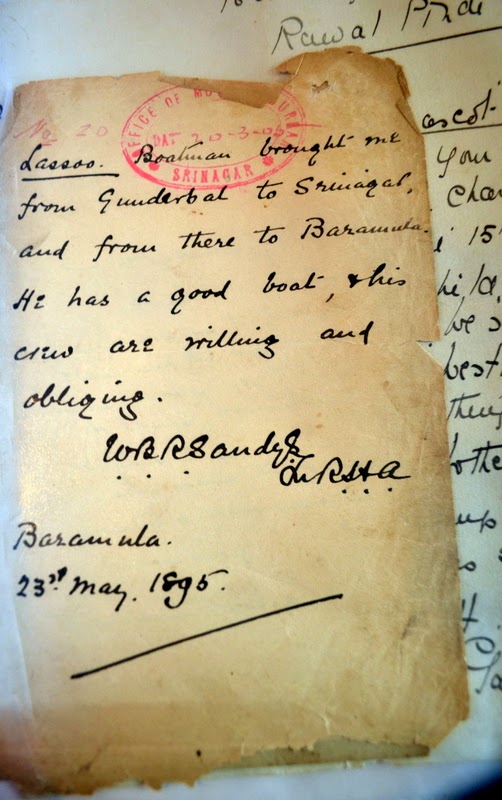 Rawal Pinde
No: 20
OFFICE OF
DAT 20-3-05
SRINAGAR
Lassoo. Boatman brought me
from Gunderbal to Srinagar,
and from there to Baramula.
He has a good boat, & his
crew are willing and
obliging.
W B R Sandys
Lt RHA
Baramula.
23rd May. 1895.
ascot
your
char
15